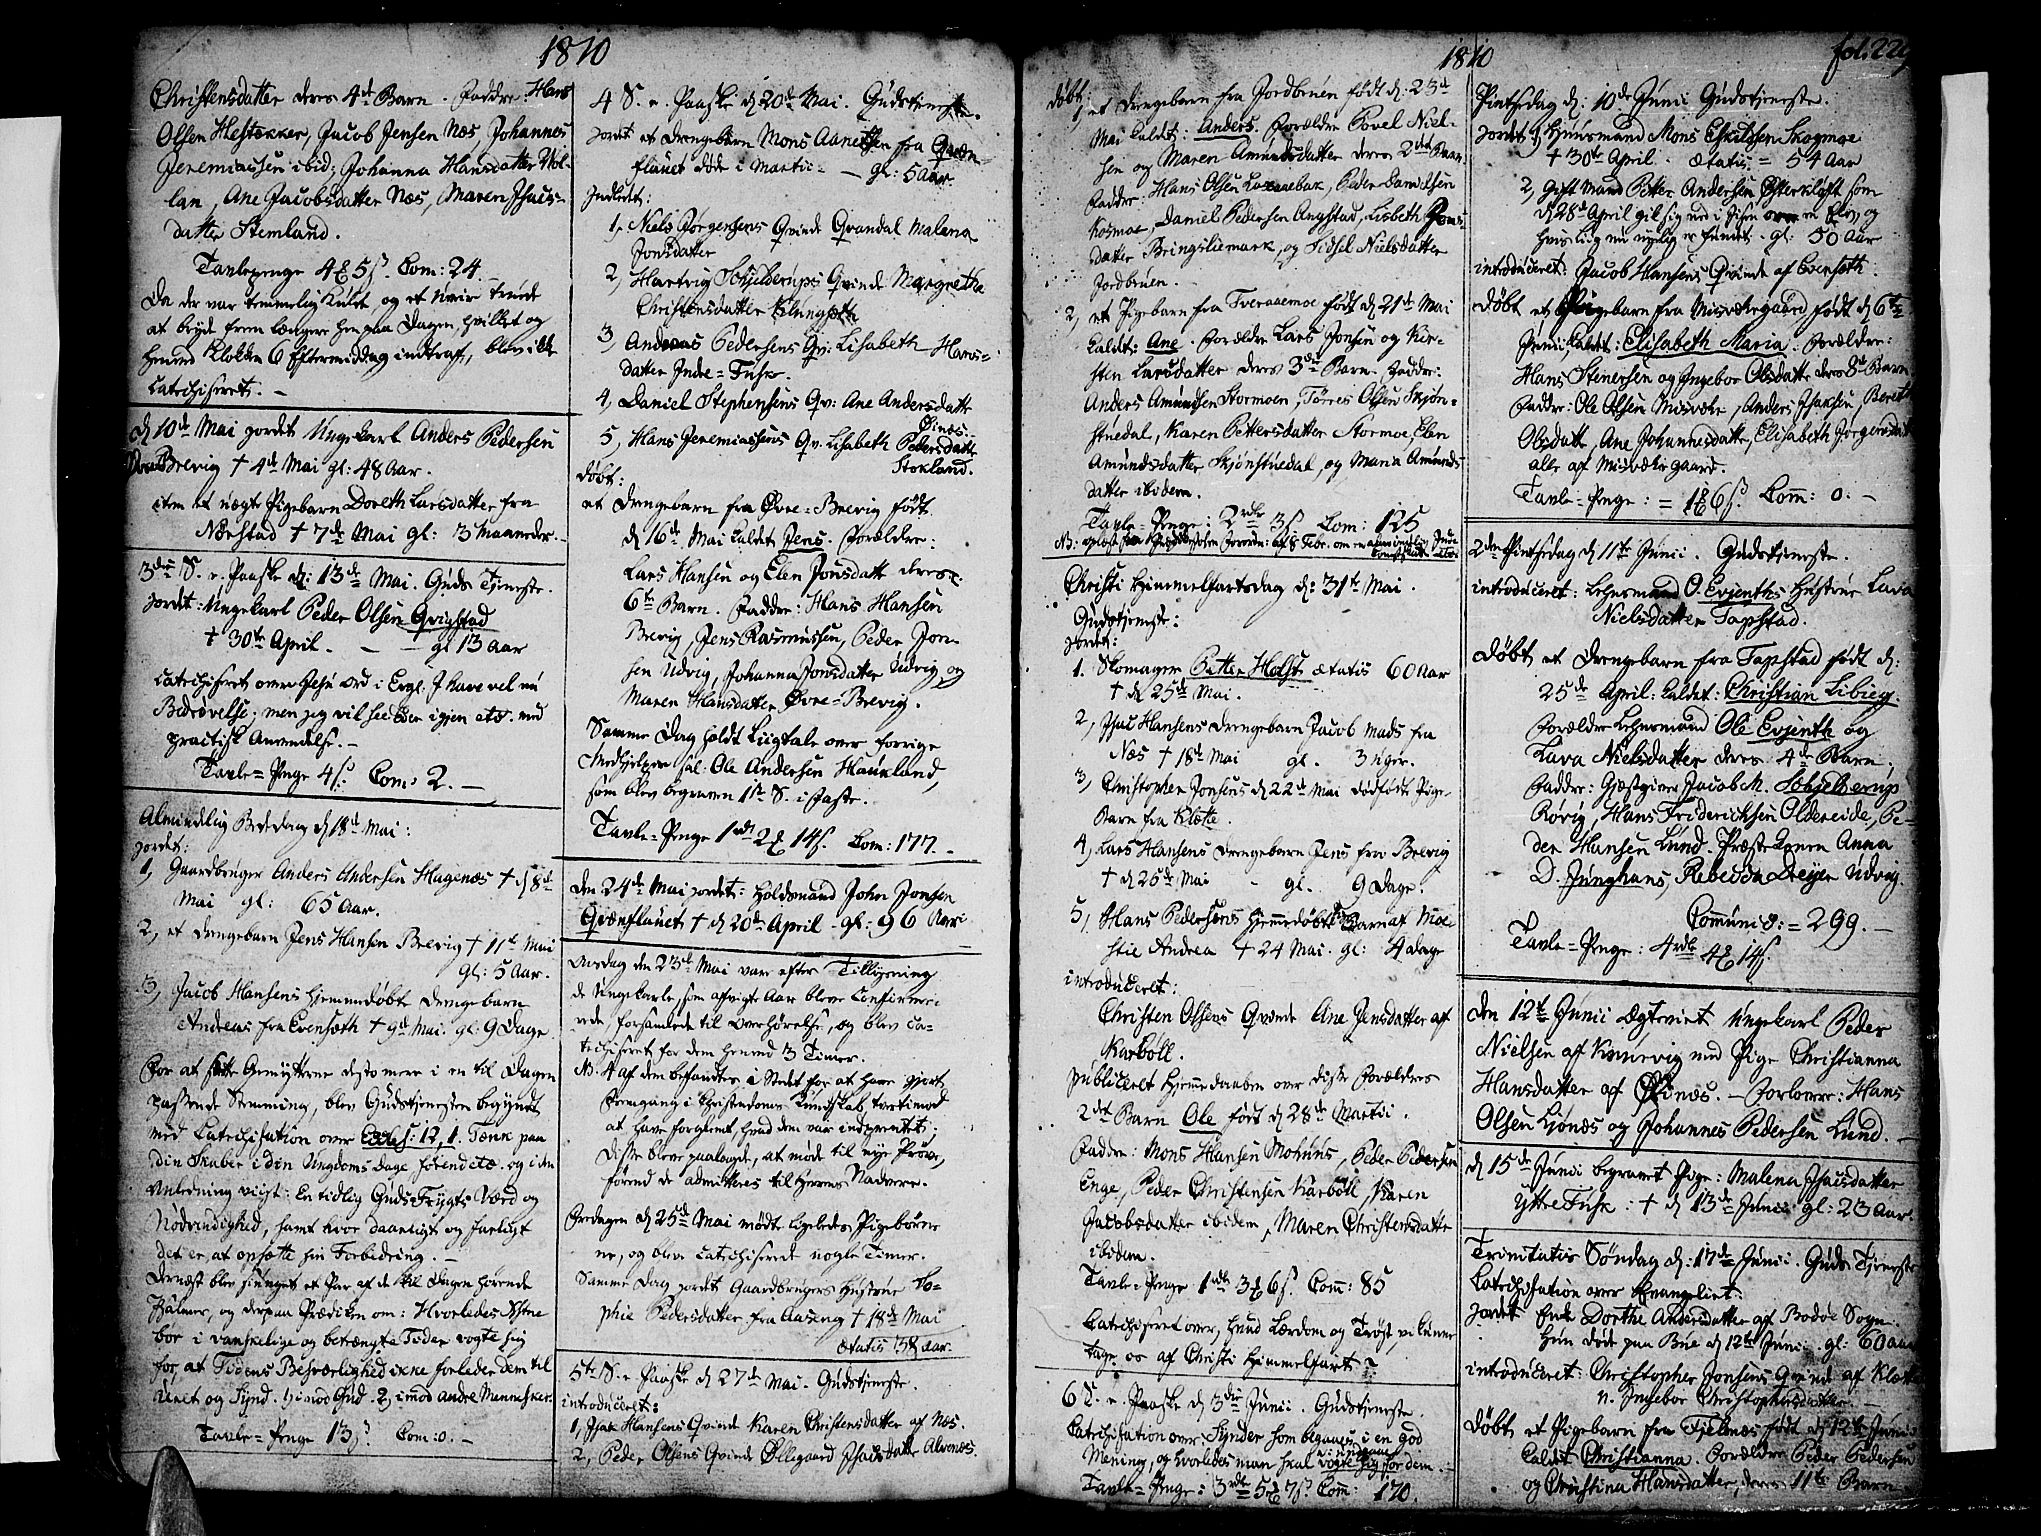 1810
Christensdatter deres 4de Barn. Faddre: Hans
Olsen Hestekker, Jacob Jensen Næs, Johannes
Jeremiassen ibid; Johanna Hansdatter
lan, Ane Jacobsdatter Næs, Maren Isacs-
datter Stemland.
Tavlepenge 4 5 s. Com: 24
Da der var temmelig kuldt, og et Uveir truede
at bryde frem længere hen paa Dagen, hvillet og
henved Klokken 6 Eftermiddag indtraf, blev ikke
catechiseret. -
d 10de Mai jordet Ungekarl Anders Pedersen
Brevig † 4de Mai gl: 48 Aar.
item et uægte Pigebarn Doreth Larsdatter fra
Næstad † 7de Mai gl: 3 Maaneder. -
3die S. e. Paaske d: 13de Mai. Guds Tjeneste.
jordet: Ungekarl Peder Olsen Qvigstad
† 30te April. - - gl 13 Aar
catechiseret over Jesu Ord i Evgl. I have vel nu
Bedrøvelse; men jeg vil see Eder igjen etc. med
practisk Anvendelse. -
Tavle-Penge 4 s. Com: 2. -
Almindelig Bededag d 18de Mai:
jordet:
1, Gaardbruger Anders Andersen Hagenæs † d 8de
Mai gl: 65 Aar.
2, et Drengebarn Jens Hansen Brevig † 11te Mai
gl: 5 Aar.
3, Jacob Hansens hjemmedøbte Drengebarn
Andreas fra Evensæth † 9de Mai. gl: 9 Dage
For at sætte Gemytterne desto mere i en til Dagen
passende Stemning, blev Gudstjenesten begyndt
med Catechisation over Eccles: 12, 1. Tænk paa
din Skaber i din Ungdoms Dage førend etc. og i den
Anledning viist: En tidlig Guds-Frygts Værd og
Nødvendighed, samt hvor daarligt og farligt
det er at opsætte sin Forbedring. -
Dernæst blev siunget et Par af de til Dagen hørende
Psalmer, og derpaa Prædiken om: Hvorledes Christne
bør i vanskelige og betrængte Tider vogte sig
for, at Tidens Besværlighed ikke forleder dem til
Uret og Synd. 1) imod Gud. 2) imod andre Mennesker.
Tavle-Penge 13 s. Com: 0. -
4 S. e. Paaske d 20de Mai. Gudstjeneste.
jordet et Drengebarn Mons Aanetsen fra Qvæn-
flauet døde i Martii - - gl: 5 Aar
Indledet:
1, Niels Jørgensens Qvinde Qvandal Malena
Jonsdatter
2, Hartvig Schjelderups Qvinde Margrethe
Christensdatter Klungsæth
3, Andreas Pedersens Qv: Lisabeth Hans-
datter Indre-Fuske.
4, Daniel Stephensens Qv: Ane Andersdatte
Øines.
5, Hans Jeremiassens Qv: Lisabeth Pedersdatte
Stokland.
Døbt:
et Drengebarn fra Øvre-Brevig født
d 16de Mai kaldet Jens. Forældre:
Lars Hansen og Elen Jonsdatt deres
6te Barn. Faddre: Hans Hansen
Brevig, Jens Rasmussen, Peder Jon-
sen Udvig, Johanna Jonsdatter Udvig og
Maren Hansdatter Øvre-Brevig.
Samme Dag holdt Liigtale over forrige
Medhjelper sal: Ole Andersen Haukland,
som blev begraven 1te S. i Faste.
Tavle-Penge 1rd 2 14 s. Com: 177. -
Den 24de Mai jordet: Holdsmand John Jonsen
Qvænflauet † d 20de April - gl: 96 Aar
Onsdag den 23de Mai vare efter Tillysning
de Ungekarle, som afvigte Aar bleve confirme-
rede, forsamlede til Overhørelse, og blev ca-
techiseret for dem henved 3 Timer.
NB. 4 af dem befandtes i Stedet for at have gjort
Fremgang i Christendoms Kundskab, tvertimod
at have forglemt hvad dem var indprentet;
Disse bleve paalagde, at møde til nye Prøve,
førend de admitteres til Herrens Nadvere.
Fredagen d 25de Mai mødte ligeledes Pigebørne-
ne, og bleve catechiserede nogle Timer.
Samme Dag jordet Gaardbrugers Hustrue So-
phie Pedersdatter fra Aaseng † 18de Mai
ætatis 38 Aar.
5te S. e. Paaske d 27de Mai. Gudstjeneste.
introduceret:
1, Isac Hansens Qvinde Karen Christensdatter af Næs.
2, Peder Olsens Qvinde Øllegaard Isacsdatter Alvenæs.
1810
fol. 229
Døbt:
1, et Drengebarn fra Jordbruen født d: 23de
Mai kaldet: Anders. Forældre Povel Niel-
sen og Maren Amundsdatter deres 2det Barn
Faddre: Hans Olsen Laxnebak, Peder Danielsen
Kosmoe, Daniel Pedersen Angstad, Lisbeth Jons-
datter Bringsliemark, og Sidsel Nielsdatter
Jordbruen.
2, et Pigebarn fra Tveraaemoe født d 21de Mai
kaldet: Ane. Forældre Lars Jonsen og Kir-
sten Larsdatter deres 3die Barn Faddre:
Anders Amundsen Stormoen, Tørres Olsen Skjøn-
stuedal, Karen Pettersdatter Stormoe, Elen
Amundsdatter Skjønstuedal, og Maria Amunds-
datter ibidem.
Tavle-Penge: 2rdlr 3 s. Com: 125
Christi Himmelfartsdag d: 31te Mai.
Gudstjeneste:
Jordet:
1. Skomager Petter Holst ætatis 60 Aar
† d 25de Mai.
2, Isac Hansens Drengebarn Jacob Mads fra
Næs † 18de Mai gl. 3 Uger.
3, Christopher Jonsens d 22de Mai dødfødte Pige-
Barn fra Klætte.
4, Lars Hansens Drengebarn Jens fra Brevig
† d 25de Mai - gl. 9 Dage.
5, Hans Pedersens hjemmedøbte Barn af Moe
Andrea † 24 Mai. gl: 4 Dage
introduceret:
Christen Olsens Qvinde Ane Jensdatter af
Karbøll.
publiceret Hjemmedaaben over disse Forældres
2det Barn Ole født d 28de Martii.
Faddre: Mons Hansen Mohuus, Peder Pedersen
Enge, Peder Christensen Karbøll, Karen
Jacobsdatter ibidem, Maren Christensdatter
ibidem.
Tavle-Penge 1rdlr 3 6 s. Com: 85
Catechiseret over, hvad Lærdom og Trøst vi kunne
tage os af Christi Himmelfart?
6 S. e. Paaske d 3die Junii. Gudstjeneste.
Catechisation over: Synder som begaaes i en god
Mening, og hvorledes man skal vogte sig for dem. -
Tavle-Penge: 3rdlr 5 7 s. Com: 170.
Pintsdag d: 10de Junii Gudstjeneste.
jordet 1, Huusmand Mons Eskilsen Skogmoe
† 30te April - ætatis = 54 Aar
2, Gift Mand Petter Andersen Østerkløft som
d 28de April gik sig ned i Isen over en Elv, og
hvis Liig nu nylig er fundet. gl: 50 Aar
introduceret: Jacob Hansens Qvinde af Evensæth.
Døbt et Pigebarn fra Misværgaard født d 6te
Junii, kaldet: Elisabeth Maria. Forældre:
Hans Stenersen og Ingebor Olsdatt. deres 8de Barn
Faddre: Ole Olsen Misvær, Anders Isaksen, Beret
Olsdatte, Ane Johannesdatte, Elisabeth Jørgensdat
alle af Misvær gaard.
Tavle-Penge: = 1 6 s. Com: 0. -
2den Pintsdag d 11te Junii. Gudstjeneste.
introduceret: Lehnsmand O. Evjenths Hustrue Lava
Nielsdatter Tapstad.
Døbt et Drengebarn fra Tapstad født d:
25de April: kaldet: Christian Libieg.
Forældre Lehnsmand Ole Evjenth og
Lava Nielsdatter deres 4de Barn;
Faddre: Gjæstgiver Jacob M. Schjelderup
Rørvig, Hans Fridericksen Oldereide, Pe-
der Hansen Lund, Præstekonen Anna
D. Junghans, Rebecka Dreyer Udvig.
Comuni: = 299. -
Tavle-Penge: 4rdlr 4 14 s.
Den 12te Junii ægteviet Ungekarl Peder
Nielsen af Knævig med Pige Christianna
Hansdatter af Øinæs. - Forlovere: Hans
Olsen Liønæs og Johannes Pedersen Lund. -
d 15de Junii begravet Pige: Malena Isacsdatter
Yttre Fuske: † d 13de Junii gl: 23 Aar.
Trinitatis Søndag d: 17de Junii. Guds Tjeneste
Catechisation over Evangeliet.
jordet Enke Dorthe Andersdatter af Bodøe Sogn
hun døde paa Bue d 12te Junii. gl: 60 Aar
introduceret: Christopher Jonsens Qvinde af Klætte
n. Ingebor Christophersdatter. -
Døbt et Pigebarn fra Fjelnæs født d 12te Junii
kaldet Christianna. Forældre Peder Pedersen
og Christina Hansdatter, deres 11te Barn.